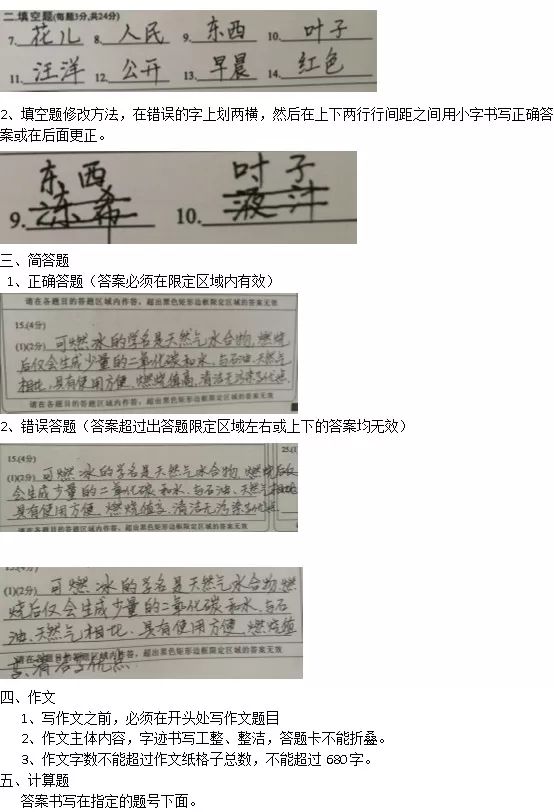 二.填空题(每题3分,共24分)
7. 花儿 8. 人民 9. 东西 10. 叶子
11. 汪洋 12. 公开 13. 早晨 14. 红色
2、填空题修改方法，在错误的字上划两横，然后在上下两行行间距之间用小字书写正确答
案或在后面更正。
东西 叶子
9. 冻希 10. 液汁
三、简答题
1、正确答题（答案必须在限定区域内有效）
请在各题目的答题区域内作答，超出黑色矩形边框限定区域的答案无效
15.(4分)
(1)(2分) 可燃冰的学名是天然气水合物,燃烧
后仅会生成少量的二氧化碳和水,与石油、天然气
相比,具有使用方便、燃烧值高、清洁无污染等优点.
请在各题目的答题区域内作答，超出黑色矩形边框限定区域的答案无效
2、错误答题（答案超过出答题限定区域左右或上下的答案均无效）
15.(4分) 25.(1
(1)(2分) 可燃冰的学名是天然气水合物,燃烧后仅
会生成少量的二氧化碳和水,与石油、天然气相比
具有使用方便、燃烧值高、清洁无污染等优点.
请在各题目的答题区域内作答，超出黑色矩形边框限定区域的答案无效
15.(4分)
(1)(2分) 可燃冰的学名是天然气水合物,燃
烧后仅会生成少量的二氧化碳和水,与石
油、天然气相比,具有使用方便、燃烧值
请在各题目的答题区域内作答，超出黑色矩形边框限定区域的答案无效
高、清洁等优点.
四、作文
1、写作文之前，必须在开头处写作文题目
2、作文主体内容，字迹书写工整、整洁，答题卡不能折叠。
3、作文字数不能超过作文纸格子总数，不能超过 680 字。
五、计算题
答案书写在指定的题号下面。